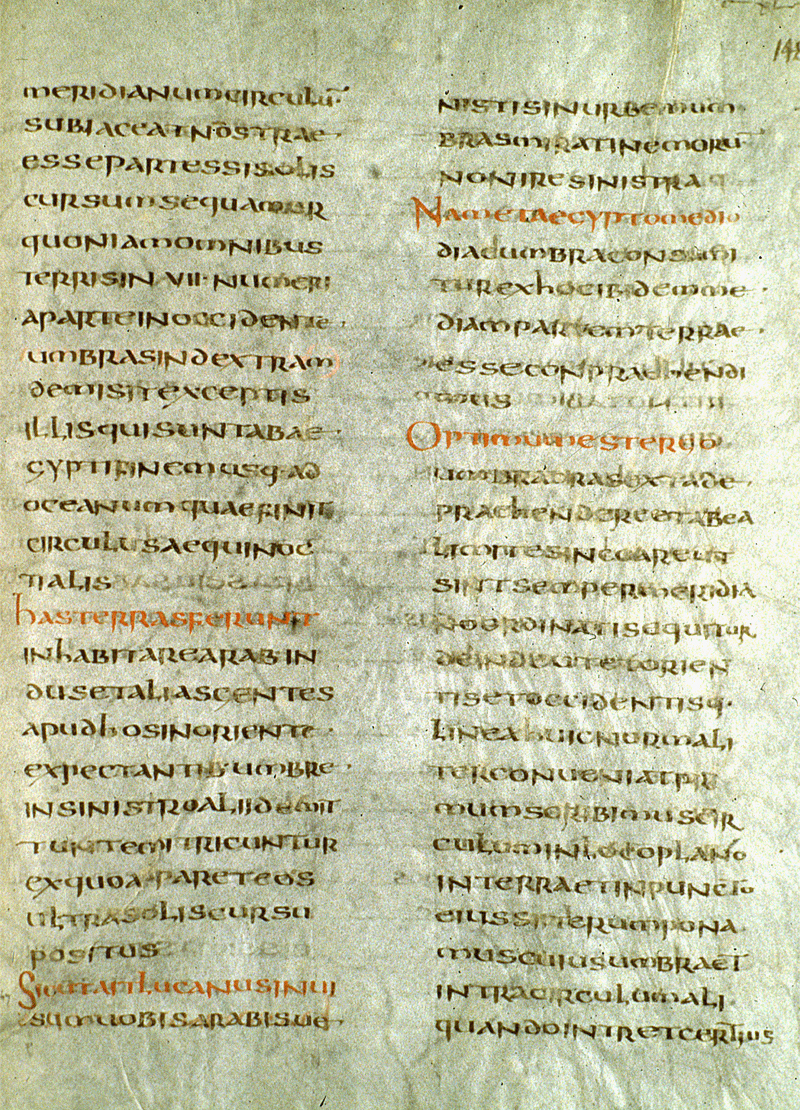 MERIDIANUM CIRCULŪ
SUBIACEAT NŌSTRAE
ESSE PARTES SI SOLIS
CURSUM SEQUAMUR
QUONIAM OMNIBUS
TERRIS IN VII · NUMERI
APARTE IN OCCIDENTE
UMBRAS IN DEXTRAM
DEMISIT EXCEPTIS
ILLIS QUI SUNT AB AE
GYPTI FINEM USQ · AD
OCEANUM QUAE FINIT
CIRCULUS AEQUINOC
TIALIS
HAS TERRAS FERUNT
INHABITARE ARAB IN
DUS ET ALIAS GENTES
APUD HOS IN ORIENTE
EXPECTANTIB · UMBRE
IN SINISTRO ALII DEMIT
TUNT EMITRICUNTUR
EX QUO APARET EOS
ULTRA SOLIS CURSU
POSITUS
SICUT AIT LUCANUS IN VII
UOBIS ARABIS UE
NISTIS IN URBEM UM
BRAS MIRATI NEMORŪ
NON IRE SINISTRA
NAM ET AEGYPTO MEDIO
DIAC UMBRA CONSUMI
TUR EX HOC IB · DEM ME
DIAM PARTEM TERRAE
ESSE CONPRAEHENDI
MUS
OPTIMUM EST ERGO
UMBRA EXTA DE
PRAEHENDERE ET AB EA
LIMITES INCOARE UT
SINT SEMPER MERIDIA
NO ORDINATI SEQUITUR
DEINDE UT ET ORIEN
TIS ET OCCIDENTIS Q ·
LINEA HUIC NORMALI
TER CONUENIAT PRI
MUM SCRIBIMUS CIR
CULUM IN LOCO PLANO
IN TERRA ET IN PUNCTO
EIUS SITERUM PONA
MUS CUIUS UMBRA ET
INTRA CIRCULUM ALI
QUANDO INTRET CERTIUS